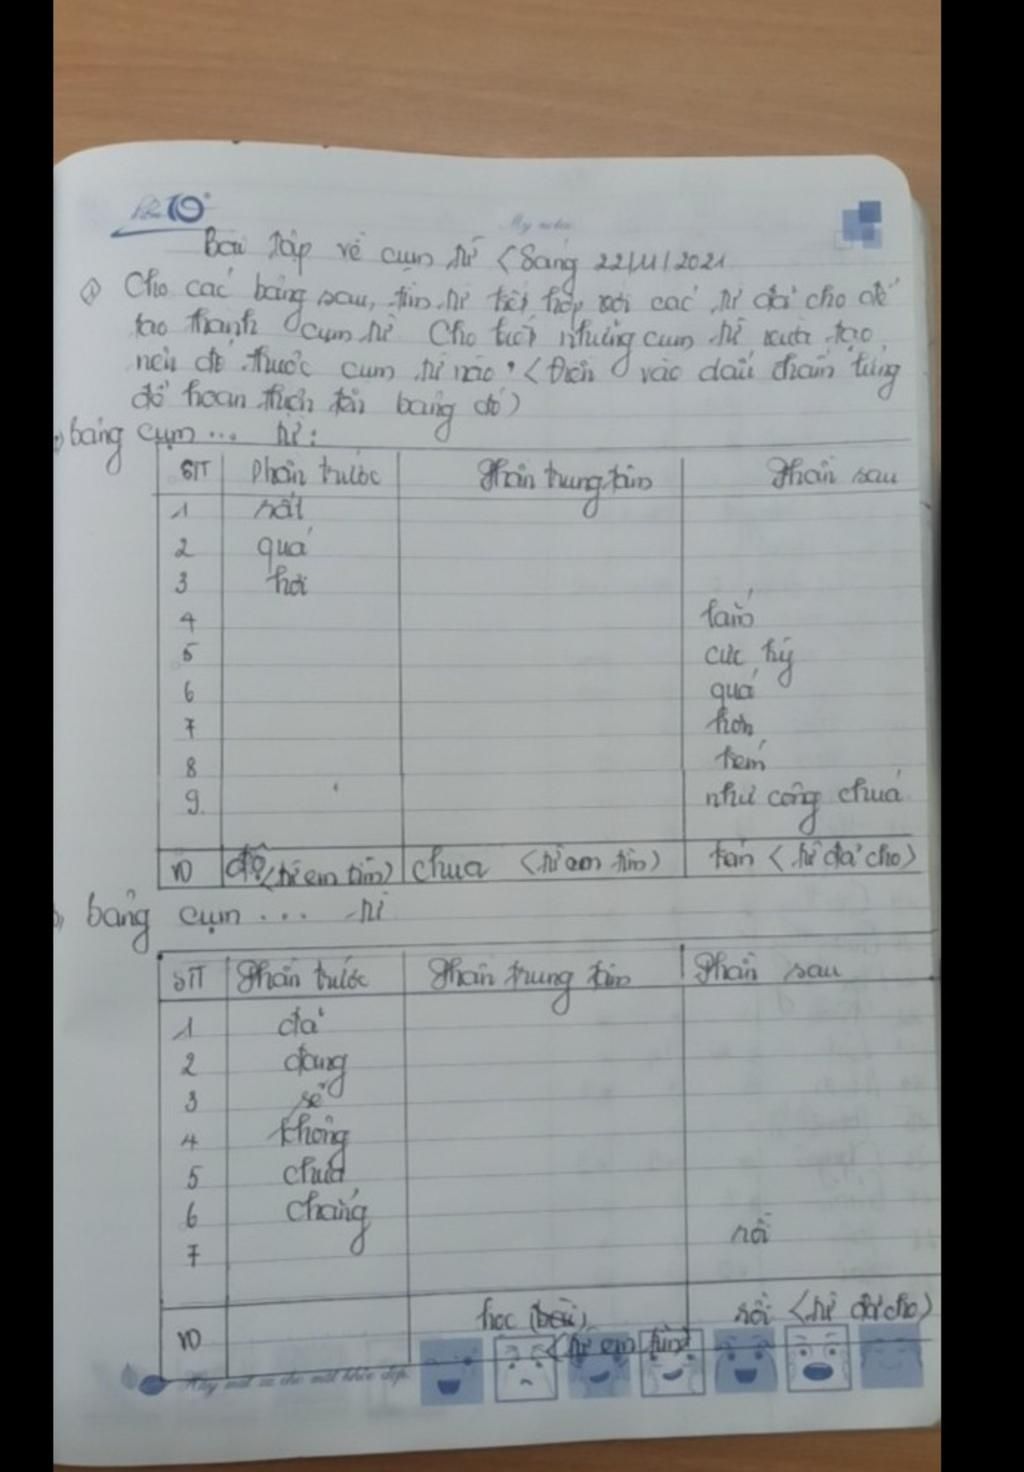 My notes
Bài tập về cụm từ (Sáng 22/11/2021
Cho các bảng sau, tìm từ kết hợp với các từ đã cho để
tạo thành cụm từ. Cho biết những cụm từ vừa tạo
nên đó thuộc cụm từ nào? (Điền vào dấu chấm từng
để hoàn thích tên bảng đó)
bảng cụm ... từ:
STT Phần trước Phần trung tâm Phần sau
1 rất
2 quá
3 hơi
4 lắm
5 cực kỳ
6 quá
7 hơn
8 kém
9. như công chúa
10 độ (từ em tìm) chua (từ em tìm) tán (từ đã cho)
bảng cụm ... từ
STT Phần trước Phần trung tâm Phần sau
1 đã
2 đang
3 sẽ
4 không
5 chưa
6 chẳng
7 rồi
10 học (bài) rồi (từ đã cho)
(từ em tìm)